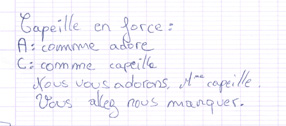 Capeille en force :
A : commme adore
C : comme capeille
Nous vous adorons, Mme capeille.
Vous allez nous manquer.